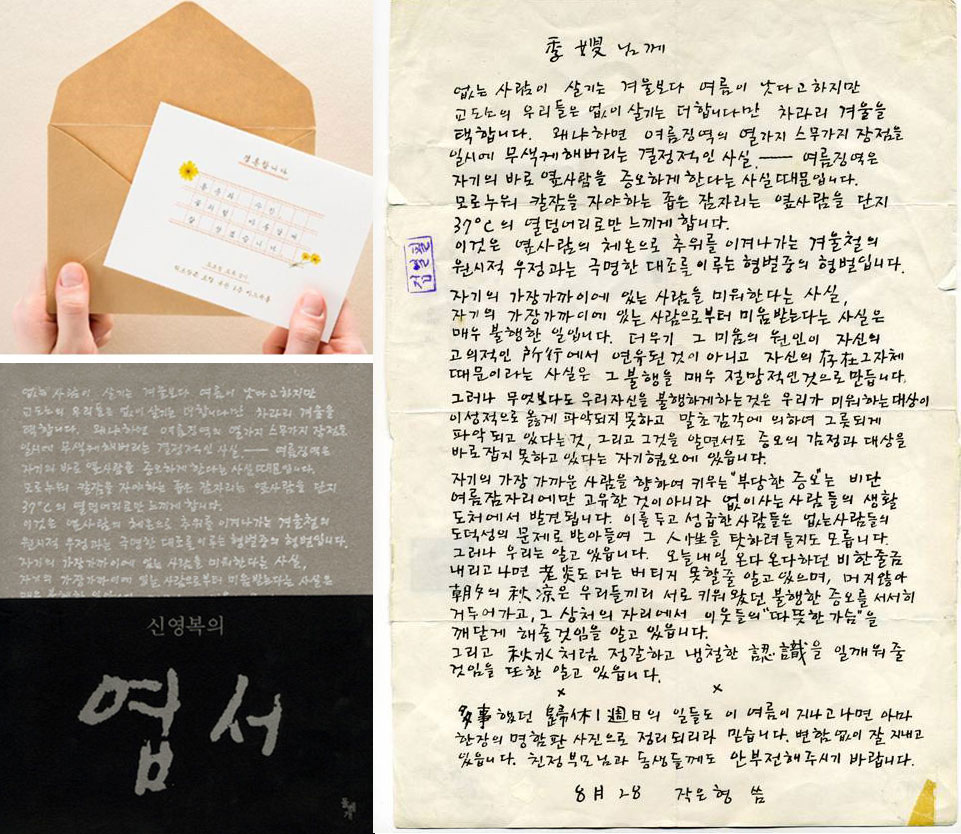 결혼합니다
없는 사람이 살기는 겨울보다 여름이 낫다고하지만
교도소의 우리들은 없이 살기는 더합니다만 차라리 겨울을
택합니다. 왜냐하면 여름징역의 열가지 스무가지 장점을
일시에 무색케해버리는 결정적인 사실 —— 여름징역은
자기의 바로 옆사람을 증오하게한다는 사실때문입니다.
모로누워 칼잠을 자야하는 좁은 잠자리는 옆사람을 단지
37℃의 열덩어리로만 느끼게합니다.
이것은 옆사람의 체온으로 추위를 이겨나가는 겨울철의
원시적 우정과는 극명한 대조를 이루는 형벌중의 형벌입니다.
자기의 가장가까이에 있는 사람을 미워한다는 사실,
자기의 가장가까이에 있는 사람으로부터 미움받는다는 사실은
신영복의
엽서
季嫂님께
없는 사람이 살기는 겨울보다 여름이 낫다고하지만
교도소의 우리들은 없이 살기는 더합니다만 차라리 겨울을
택합니다. 왜냐하면 여름징역의 열가지 스무가지 장점을
일시에 무색케해버리는 결정적인 사실 —— 여름징역은
자기의 바로 옆사람을 증오하게한다는 사실때문입니다.
모로누워 칼잠을 자야하는 좁은 잠자리는 옆사람을 단지
37℃의 열덩어리로만 느끼게합니다.
이것은 옆사람의 체온으로 추위를 이겨나가는 겨울철의
원시적 우정과는 극명한 대조를 이루는 형벌중의 형벌입니다.
검열필
자기의 가장가까이에 있는 사람을 미워한다는 사실,
자기의 가장가까이에 있는 사람으로부터 미움받는다는 사실은
매우 불행한 일입니다. 더우기 그 미움의 원인이 자신의
고의적인 所行에서 연유된것이 아니고 자신의 存在그자체
때문이라는 사실은 그 불행을 매우 절망적인것으로 만듭니다.
그러나 무엇보다도 우리자신을 불행하게하는것은 우리가 미워하는대상이
이성적으로 옳게 파악되지못하고 말초감각에 의하여 그릇되게
파악되고있다는것, 그리고 그것을 알면서도 증오의 감정과 대상을
바로잡지못하고있다는 자기혐오에 있읍니다.
자기의 가장 가까운 사람을 향하여 키우는 "부당한 증오"는 비단
여름잠자리에만 고유한것이 아니라 없이사는사람들의 생활
도처에서 발견됩니다. 이를두고 성급한사람들은 없는사람들의
도덕성의 문제로 받아들여 그 人性을 탓하려들지도 모릅니다.
그러나 우리는 알고 있읍니다. 오늘내일 온다 온다하던 비 한줄금
내리고나면 老炎도 더는 버티지 못할줄 알고있으며, 머지않아
朝夕의 秋凉은 우리들끼리 서로 키워왔던 불행한 증오를 서서히
거두어가고, 그 상처의 자리에서 이웃들의 "따뜻한 가슴"을
깨닫게 해줄것임을 알고 있읍니다.
그리고 秋水처럼 정갈하고 냉철한 認識을 일깨워줄
것임을 또한 알고 있읍니다.
× ×
多事했던 歸休1週日의 일들도 이 여름이지나고나면 아마
한장의 명함판 사진으로 정리되리라 믿습니다. 변함없이 잘 지내고
있읍니다. 친정부모님과 동생들께도 안부전해주시기 바랍니다.
8月 28 작은형 씀